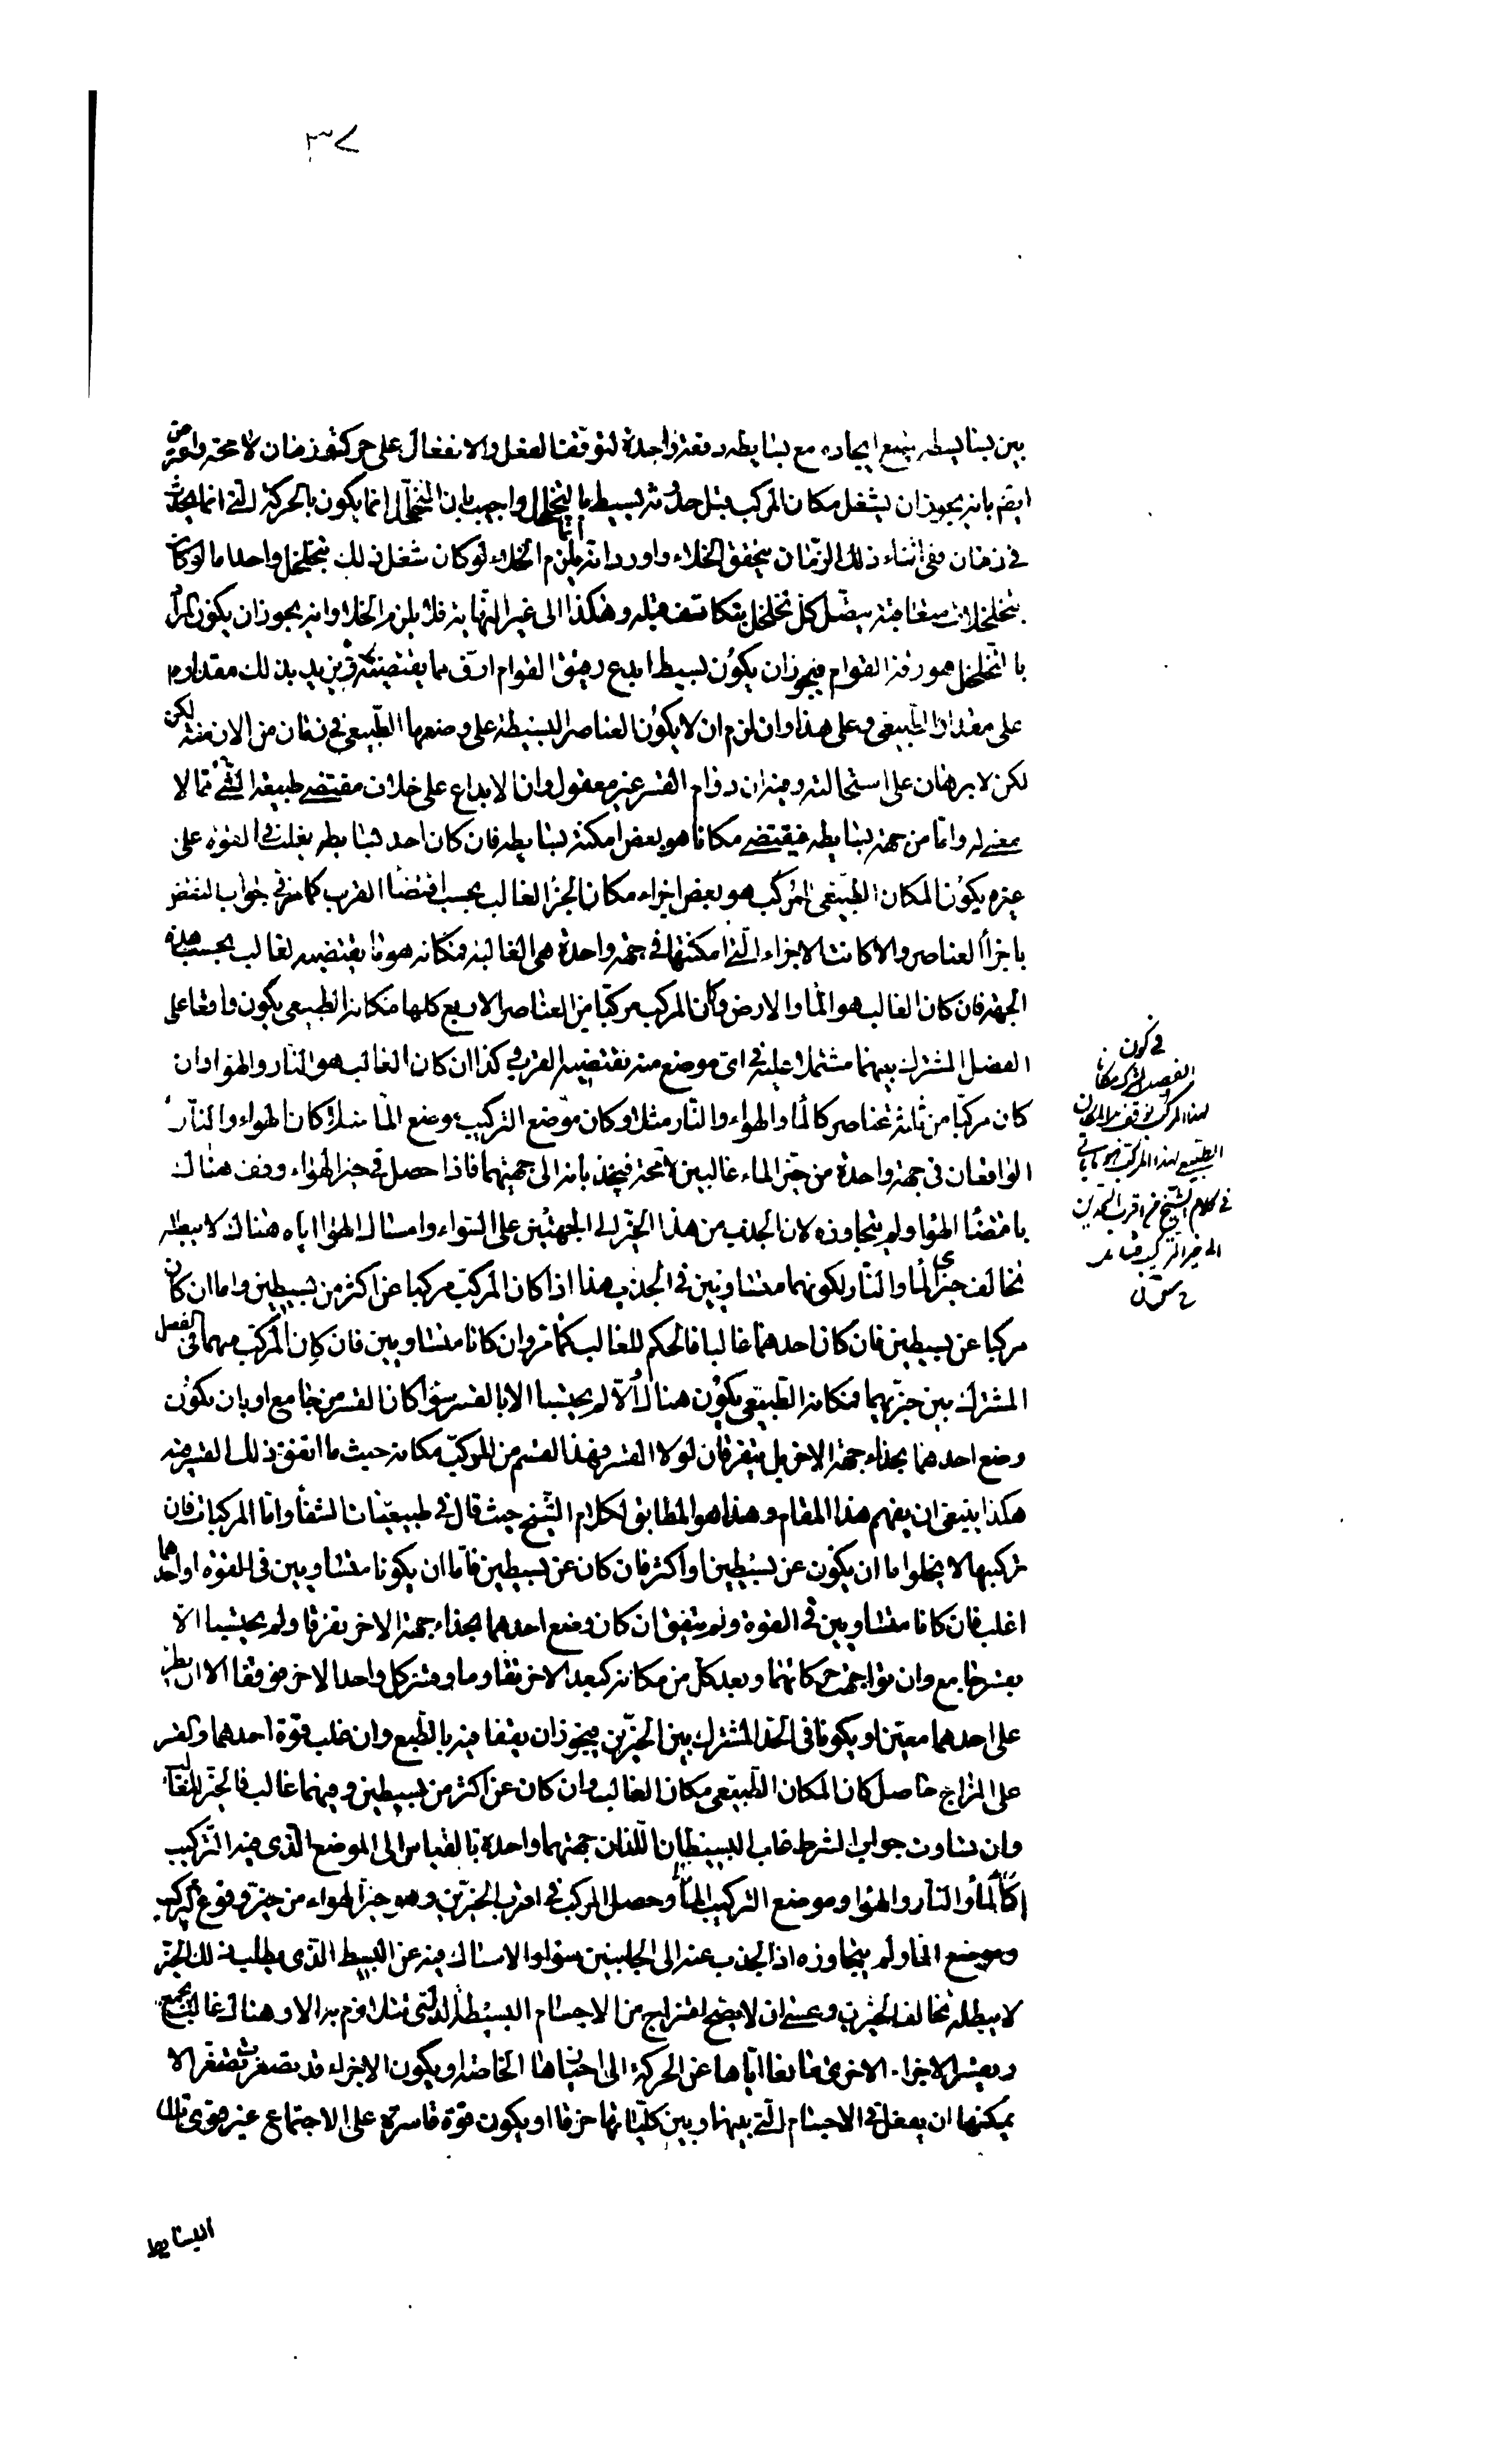 ٣٧
بين بسايطه يمنع ايجاده مع بسايطه دفعة واحدة لتوقف الفعل والانفعال على حركة وزمان لا محة واعترض
ايضم بانه يجوز ان يشغل مكان المركب قبل حدوثه بسيط بالتخلخل واجيب بان التخلخل انما يكون بالحركة التي انما يحدث
في زمان ففي اثناء ذلك الزمان يتحقق الخلاء واورد انه انما يلزم الخلاء لو كان شغل ذلك بتخلخل واحد اما لو كان
بتخلخلات متعاقبة يتصل كل تخلخل بتكاثف قبله وهكذا الى غير النهاية فلا يلزم الخلاء وانه يجوز ان يكون المراد
با التخلخل هو رقة القوام فيجوز ان يكون بسيط ابدع رقيق القوام ارق مما يقتضيه فيزيد بذلك مقداره
على مقداره الطبيعي وعلى هذا وان لزم ان لا يكون العناصر البسيطة على وضعها الطبيعي في زمان من الازمنة لكن
لكن لا برهان على استحالته وفيه ان دوام القسر غير معقول وان الابداع على خلاف مقتضى طبيعة الشيء مما لا
معنى له واما من جهة بسايطه فيقتضى مكانا هو بعض امكنة بسايطه فان كان احد بسايطه يغلب في القوة على
غيره يكون المكان الطبيعي للمركب هو بعض اجزاء مكان الجزء الغالب بحسب اقتضاء القرب كما مر في جواب النقض
باجزاء العناصر والا كانت الاجزاء التي امكنتها في جهة واحدة هي الغالبة فمكانه هو ما يقتضيه الغالب بحسب هذه
الجهة فان كان الغالب هو الماء والارض وكان المركب مركبا من العناصر الاربع كلها فمكانه الطبيعي يكون واقعا على
الفصل المشترك بينهما مشتملا عليه في اي موضع منه يقتضيه القرب وكذا ان كان الغالب هو النار والهواء وان
كان مركبا من ثلثة عناصر كالماء والهواء والنار مثلا وكان موضع التركيب موضع الماء مثلا كان الهواء والنار
الواقعان في جهة واحدة من حيز الماء غالبين لا محة فيجذبانه الى جهتهما فاذا حصل في حيز الهواء وقف هناك
باقتضاء الهواء ولم يتجاوزه لان الجذب من هذا الحيز الى الجهتين على السواء وامساك الهواء اياه هناك لا يبطله
تخالف جزئي الماء والنار لكونهما متساويين في الجذب هذا اذا كان المركب مركبا عن اكثر من بسيطين واما ان كان
مركبا عن بسيطين فان كان احدهما غالبا فالحكم للغالب كما مر وان كانا متساويين فان كان المركب منهما في الفصل
المشترك بين حيزيهما فمكانه الطبيعي يكون هناك والا لم يحتبسا الا بالقسر سواء كان القسر من جامع او بان يكون
وضع احدهما بحذاء جهة الاخر بل يتفرقان لولا القسر وهذا القسم من المركب مكانه حيث ما اتفق ذلك القسر فيه
هكذا ينبغي ان يفهم هذا المقام وهذا هو المطابق لكلام الشيخ حيث قال في طبيعيات الشفاء واما المركبات فان
تركيبها لا يخلوا ما ان يكون عن بسيطين او اكثر فان كان عن بسيطين فاما ان يكونا متساويين في القوة او احدهما
اغلب فان كانا متساويين في القوة ولم يتفق ان كان وضع احدهما بحذاء جهة الاخر تفرقا ولم يحتبسا الا
بقسر جامع وان تواجهت حركاتهما وبعد كل من مكانه كبعد الاخر تقاوما وقسر كل واحد الاخر فوقفا الا ان يطرء
على احدهما معين او يكونا في الحد المشترك بين الحيزين فيجوز ان يقفا فيه بالطبع وان غلب قوة احدهما والقسر
على المزاج حاصل كان المكان الطبيعي مكان الغالب وان كان عن اكثر من بسيطين وفيهما غالب فالحيز للغالب
وان تساوت جواب الشرط غلب البسيطان اللذان جهتهما واحدة بالقياس الى الموضع الذي فيه التركيب
كالماء والنار والهواء وموضع التركيب الماء وحصل المركب في اقرب الحيزين وهو حيز الهواء من حيز وقوع التركيب
وهو موضع الماء ولم يتجاوزه اذ الجذب عنه الى الجانبين سواء والامساك فيه عن البسيط الذي يطلب ذلك الحيز
لا يبطله تخالف الجزئين وعسى ان لا يصح امتزاج من الاجسام البسيطة التي تتلازم به الا وهناك غالب يجمع
ويقسر الاجزاء الاخرى مانعا اياها عن الحركة الى احيازها الخاصة او يكون الاجزاء قد تصغرت تصغرا لا
يمكنها ان يفعل في الاجسام التي بينها وبين كلياتها خرقا او يكون قوة قاسرة على الاجتماع غير قوى تلك
البسايط
في كون
الفصل المشترك مكانا
لهذا المركب
الطبيعي لهذا المركب
في كلام الشيخ من اقرب الحيزين
الى حيز التركيب فتامل